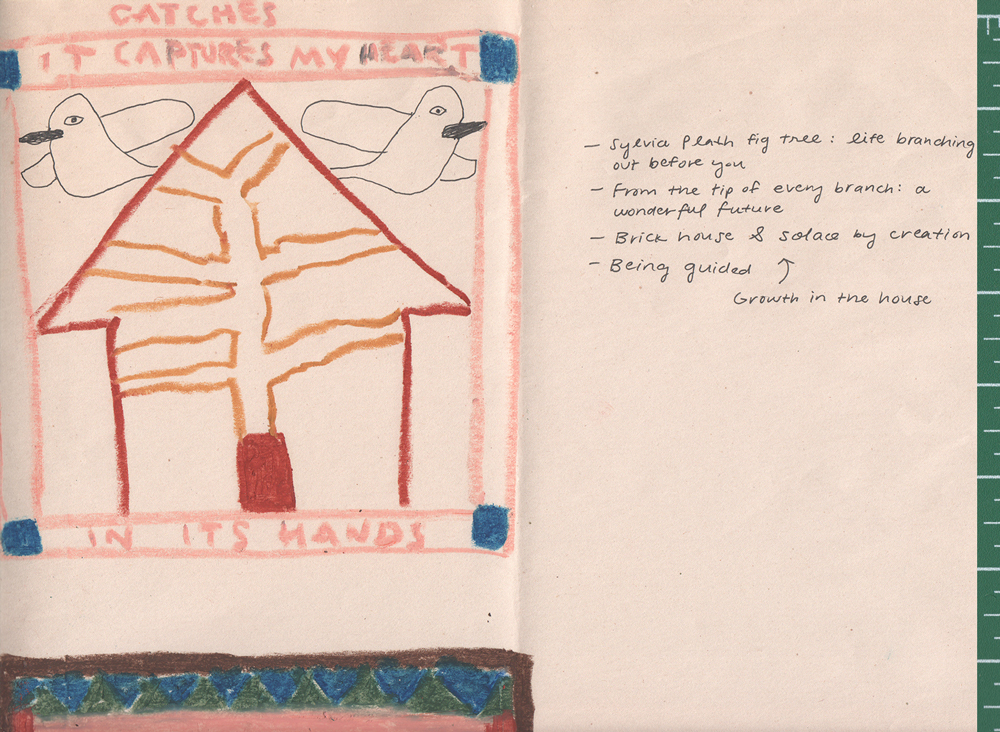 CATCHES
IT CAPTURES MY HEART
IN ITS HANDS
— Sylvia Plath fig tree : life branching
out before you
— From the tip of every branch: a
wonderful future
— Brick house & solace by creation
— Being guided ↑
Growth in the house